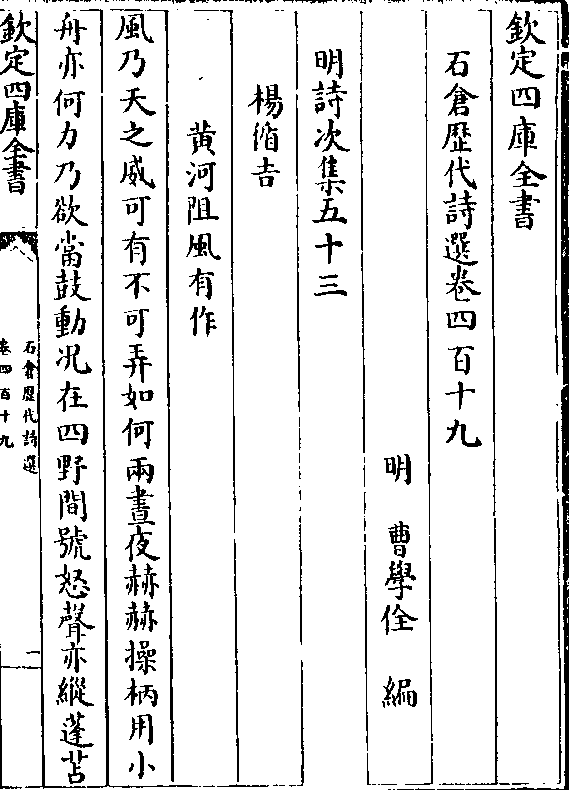 欽定四庫全書
石倉歴代詩選卷四百十九
明 曹學佺 編
明詩次集五十三
楊循吉
黄河阻風有作
風乃天之威可有不可弄如何兩晝夜赫赫操柄用小
舟亦何力乃欲當鼓動况在四野間號怒聲亦縱蓬苫
欽定四庫全書
石倉歴代詩選
卷四百十九
一